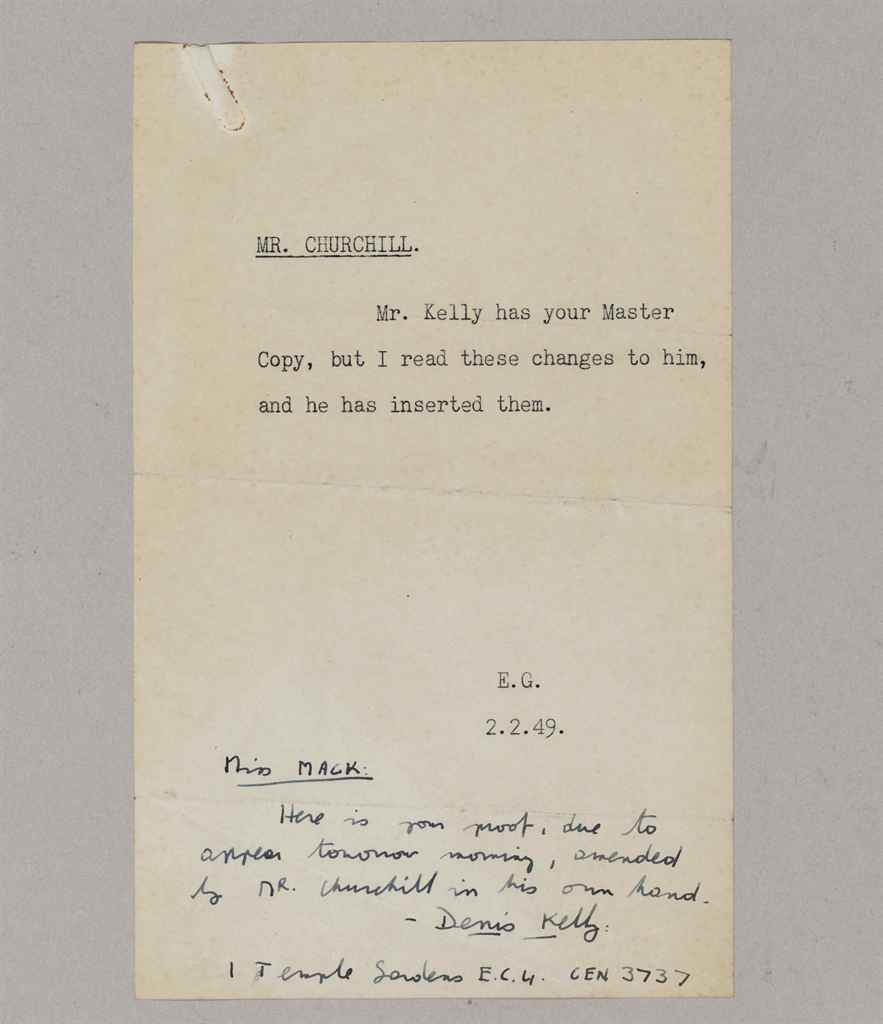 MR. CHURCHILL.
Mr. Kelly has your Master
Copy, but I read these changes to him,
and he has inserted them.
E.G.
2.2.49.
Miss MACK:
Here is your proof, due to
appear tomorrow morning, amended
by MR. Churchill in his own hand.
- Denis Kelly:
1 Temple Gardens E.C.4. CEN 3737